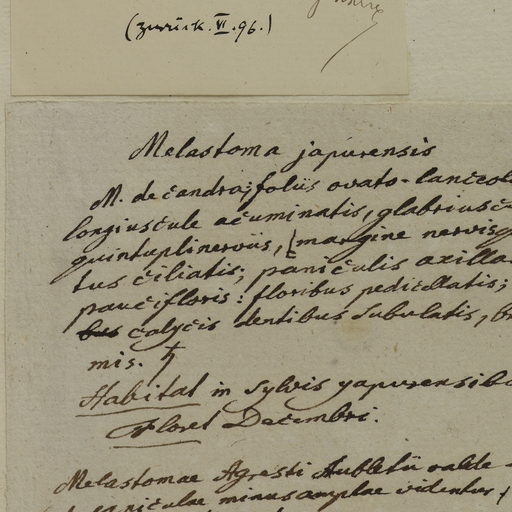 (zurück. VI. 96.)
Melastoma japurensis
M. decandra; foliis ovato-lanceol
longiuscule acuminatis, glabriusc
quintuplinerviis, (margine nervisq
tus ciliatis; paniculis axilla
paucifloris: floribus pedicellatis;
bus calycis dentibus subulatis, br
mis. ♄
Habitat in sylvis yapurensib
Floret Decembri.
Melastomae Agresti Aubletii valde
paniculae minus amplae videntur,